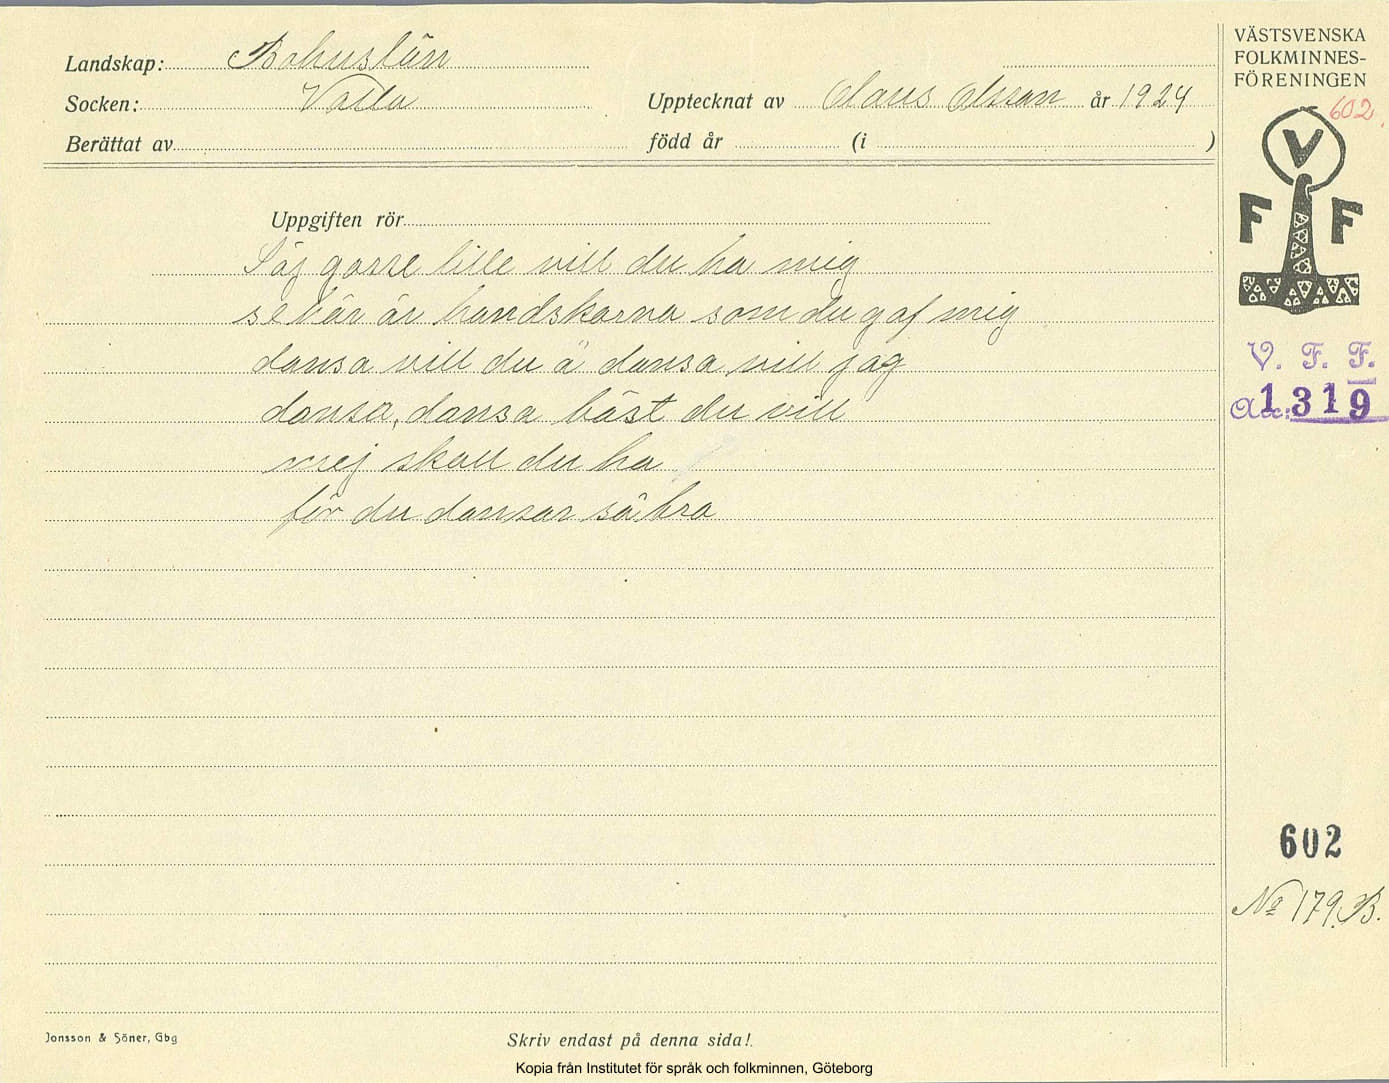 Landskap: Bohuslän
Socken: Valla
Upptecknat av Claus Olsson år 1924
Berättat av
född år (i )
Uppgiften rör
Säj gosse lille vill du ha mig
se här är handskarna som du gaf mig
dansa vill du å dansa vill jag
dansa, dansa bäst du vill
mej skall du ha
för du dansar så bra
VÄSTSVENSKA
FOLKMINNES-
FÖRENINGEN
602.
V
F F
V. F. F.
Acc: 1319
602
No 179.B.
Jonsson & Söner, Gbg
Skriv endast på denna sida!
Kopia från Institutet för språk och folkminnen, Göteborg